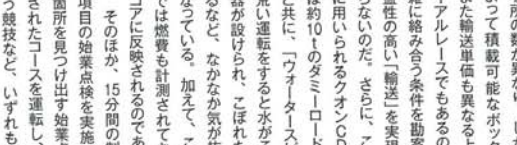 所の数が異なり、した
って積載可能なボック
また輸送単価も異なる上
アルレースでもあるの
雑に絡み合う条件を勘案
益性の高い「輸送」を実現
らないのだ。さらに、こ
に用いられるクオンCD
は約10tのダミーロード
と共に、「ウォータースピ
荒い運転をすると水がこ
器が設けられ、こぼれた
るなど、なかなか気が抜
なっている。加えて、こ
では燃費も計測されてお
コアに反映されるのであ
そのほか、15分間の制
項目の始業点検を実施
箇所を見つけ出す始業
されたコースを運転し、
う競技など、いずれも